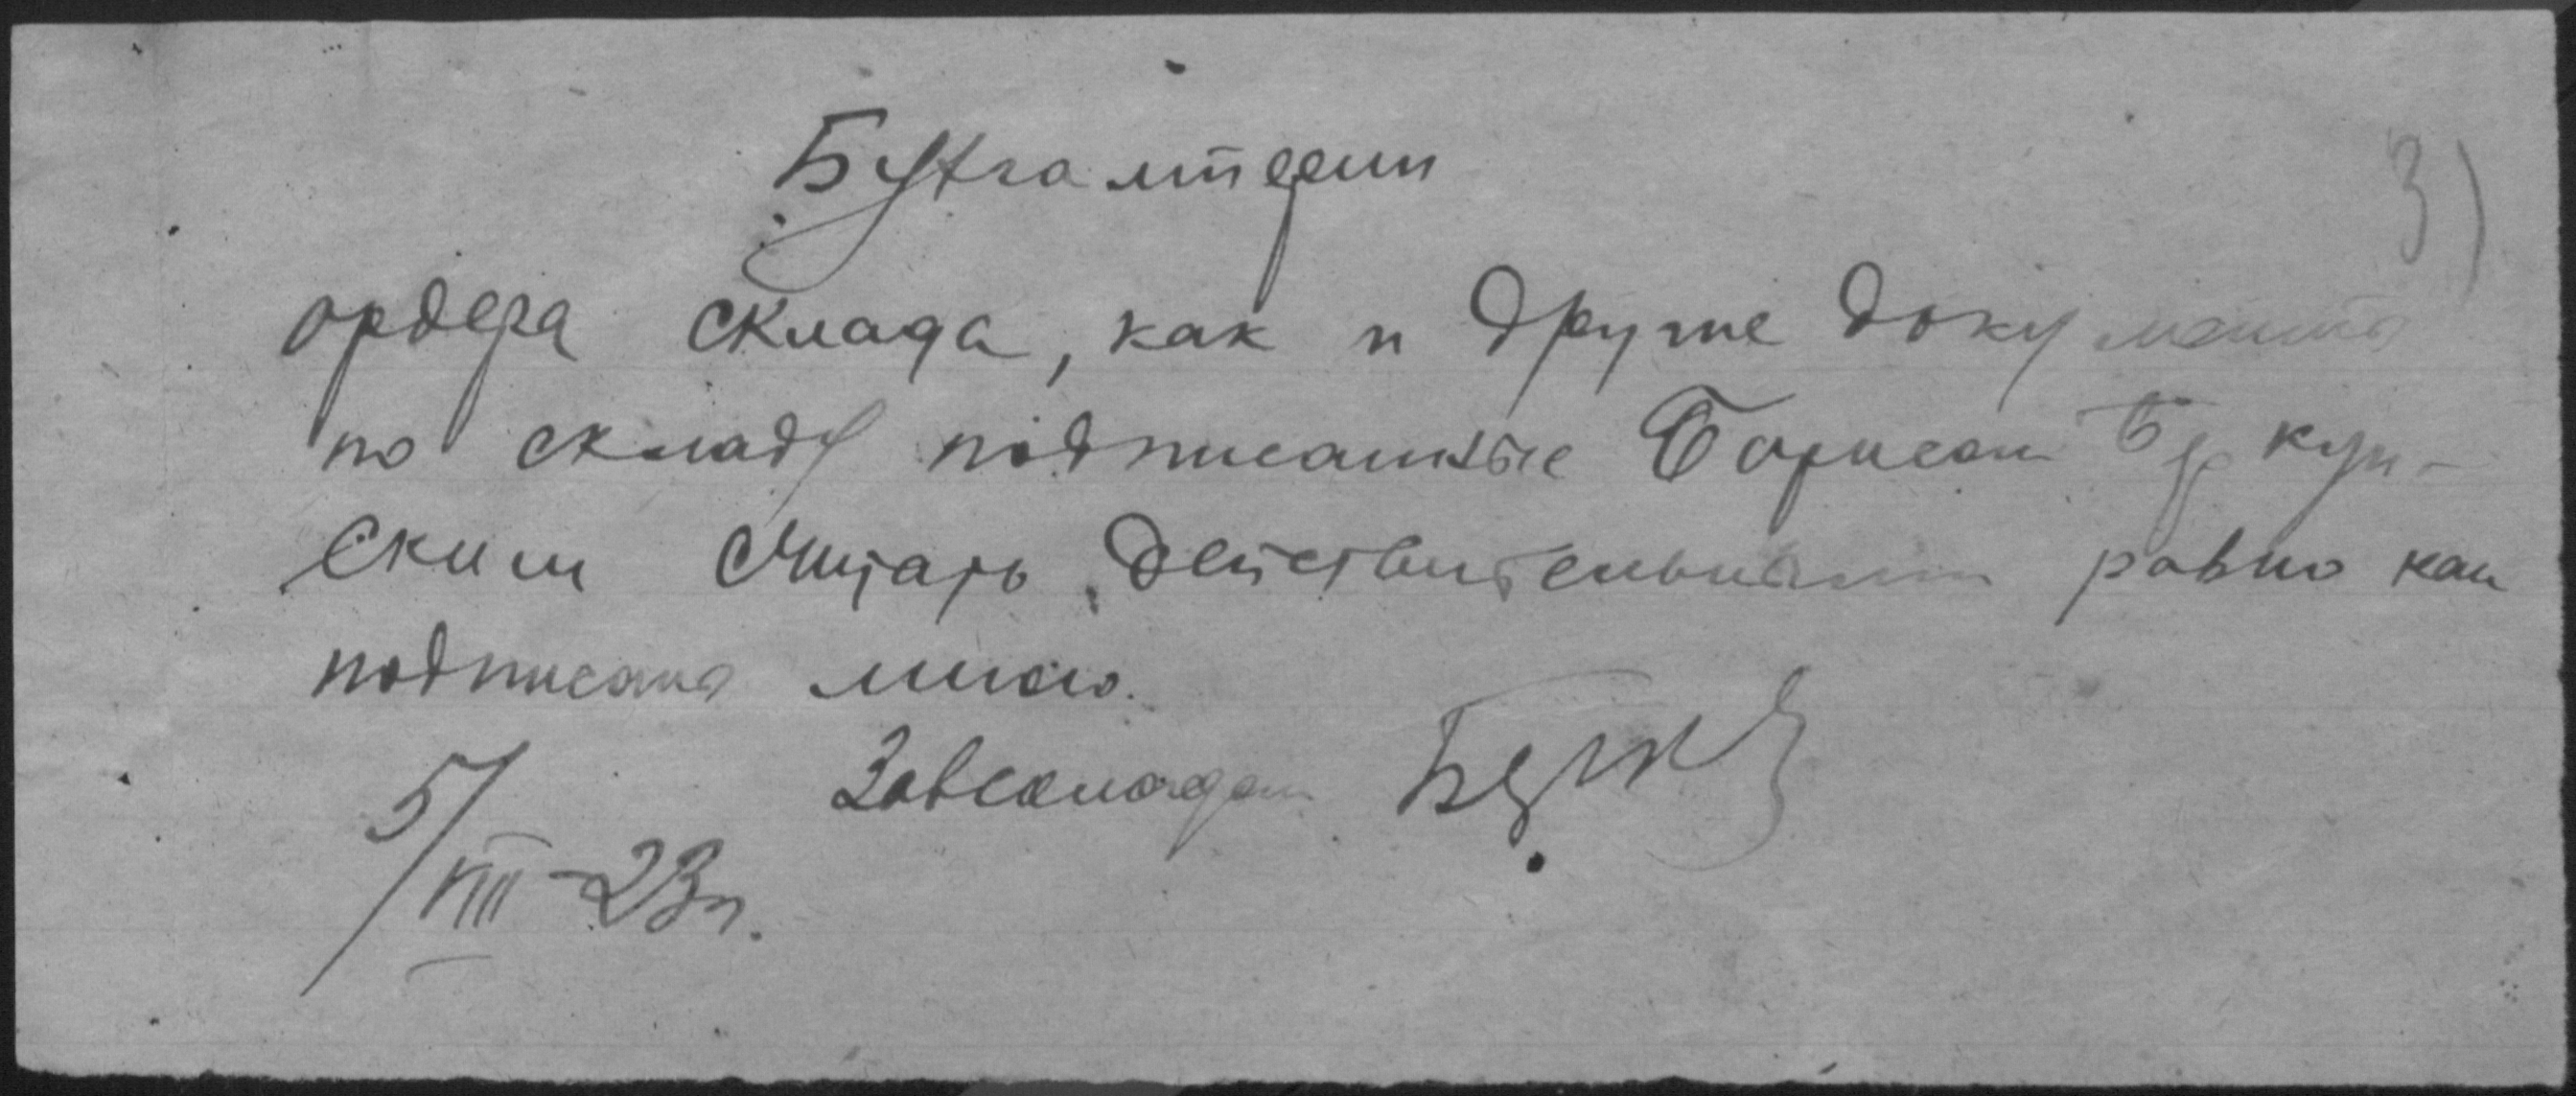 Бухгалтерии
3)
ордера склада, как и другие документы
по складу подписанные Борисом Беркун-
ским считать действительными равно как
подписаны мною.
Завскладом
5/VIII-23г.